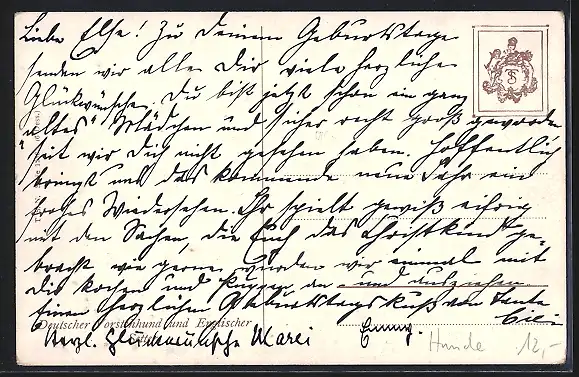 Liebe Else! Zu Deinem Geburtstage
senden wir alle Dir viele herzliche
Glückwünsche. Du bist jetzt schon ein ganz
"altes" Mädchen und sicher recht groß geworden
seit wir Dich nicht gesehen haben. Hoffentlich
bringt uns das kommende neue Jahr ein
frohes Wiedersehen. Ihr spielt gewiß eifrig
mit den Sachen, die Euch das Christkind ge-
bracht, wie gerne würden wir einmal mit
Dir kochen und Puppe an- und ausziehen.
Einen herzlichen Geburtstagskuß von Tante
Deutscher Vorstehhund und Englischer
Herzl. Glückwünsche Marei Emmy. Cili
Hunde 12,-